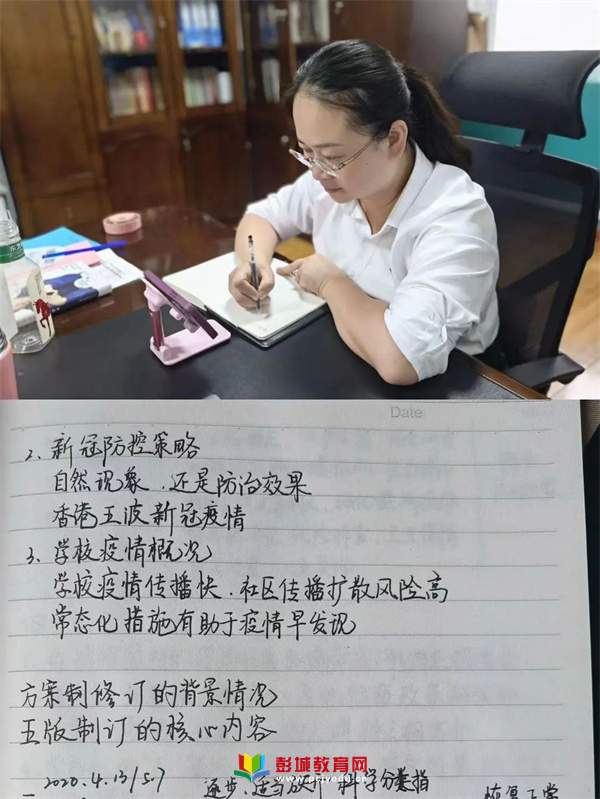 Date
2、新冠防控策略
自然现象,还是防治效果
香港五波新冠疫情
3、学校疫情概况
学校疫情传播快,社区传播扩散风险高
常态化措施有助于疫情早发现
方案制修订的背景情况
五版制订的核心内容
彭城教育网
www.pcjyedu.cn
2020.4.13/5.7 逐步、适当放开 科学分类指 恢复正常